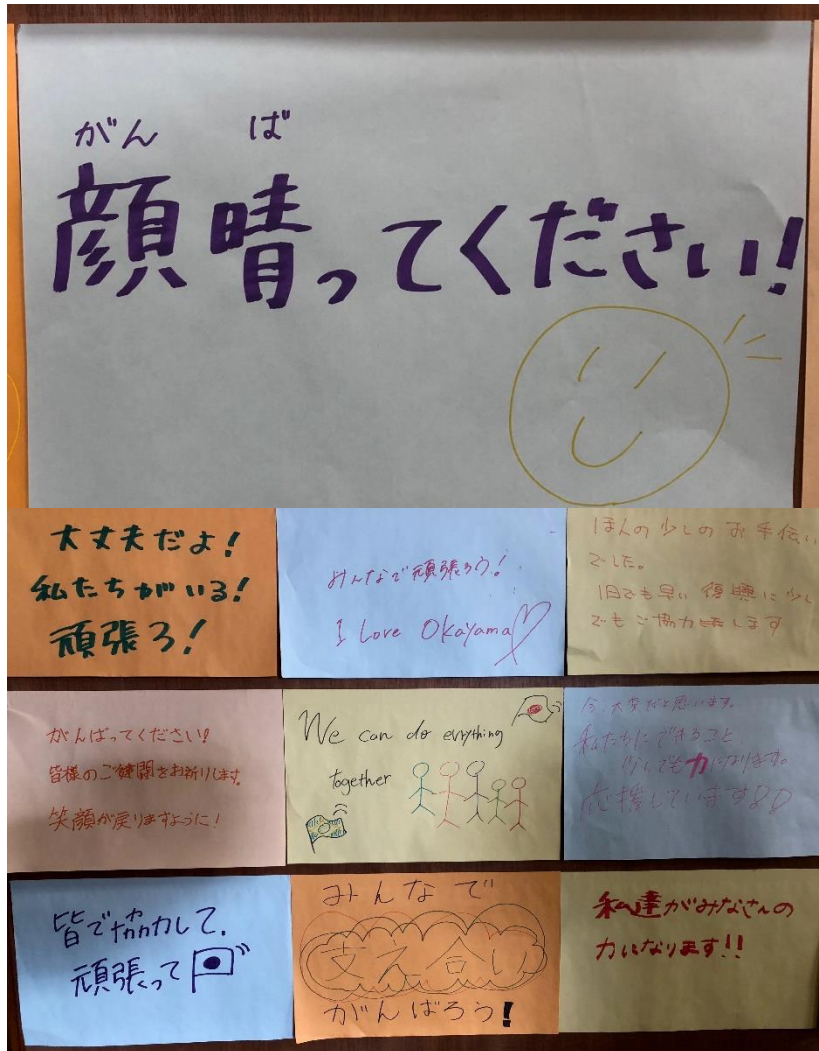 がん ば
顔晴ってください!
大丈夫だよ!
私たちがいる!
頑張ろ!
みんなで頑張ろう!
I Love Okayama
ほんの少しのお手伝い
でした。
1日でも早い復興に少し
でもご協力致します
がんばってください!
皆様のご健闘をお祈りします。
笑顔が戻りますように!
We can do evrything
together
今、大変だと思います。
私たちにできること
少しでも力になります。
応援しています
皆で協力して、
頑張って
みんなで
支え合い
がんばろう!
私達がみなさんの
力になります!!